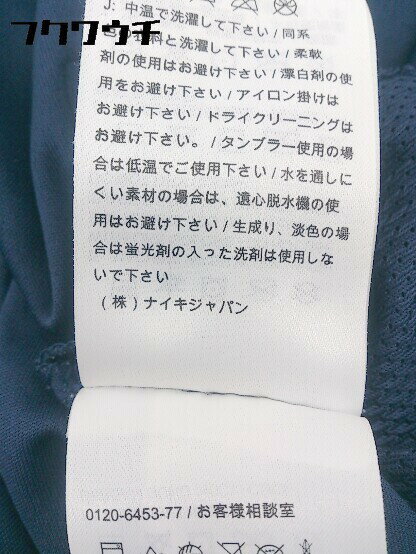 フクワウチ
J: 中温で洗濯して下さい / 同系
色の衣料と洗濯して下さい / 柔軟
剤の使用はお避け下さい / 漂白剤の使
用をお避け下さい / アイロン掛けは
お避け下さい / ドライクリーニングは
お避け下さい。 / タンブラー使用の場
合は低温でご使用下さい / 水を通しに
くい素材の場合は、遠心脱水機の使
用はお避け下さい / 生成り、淡色の場
合は蛍光剤の入った洗剤は使用しな
いで下さい
（株）ナイキジャパン
0120-6453-77 / お客様相談室